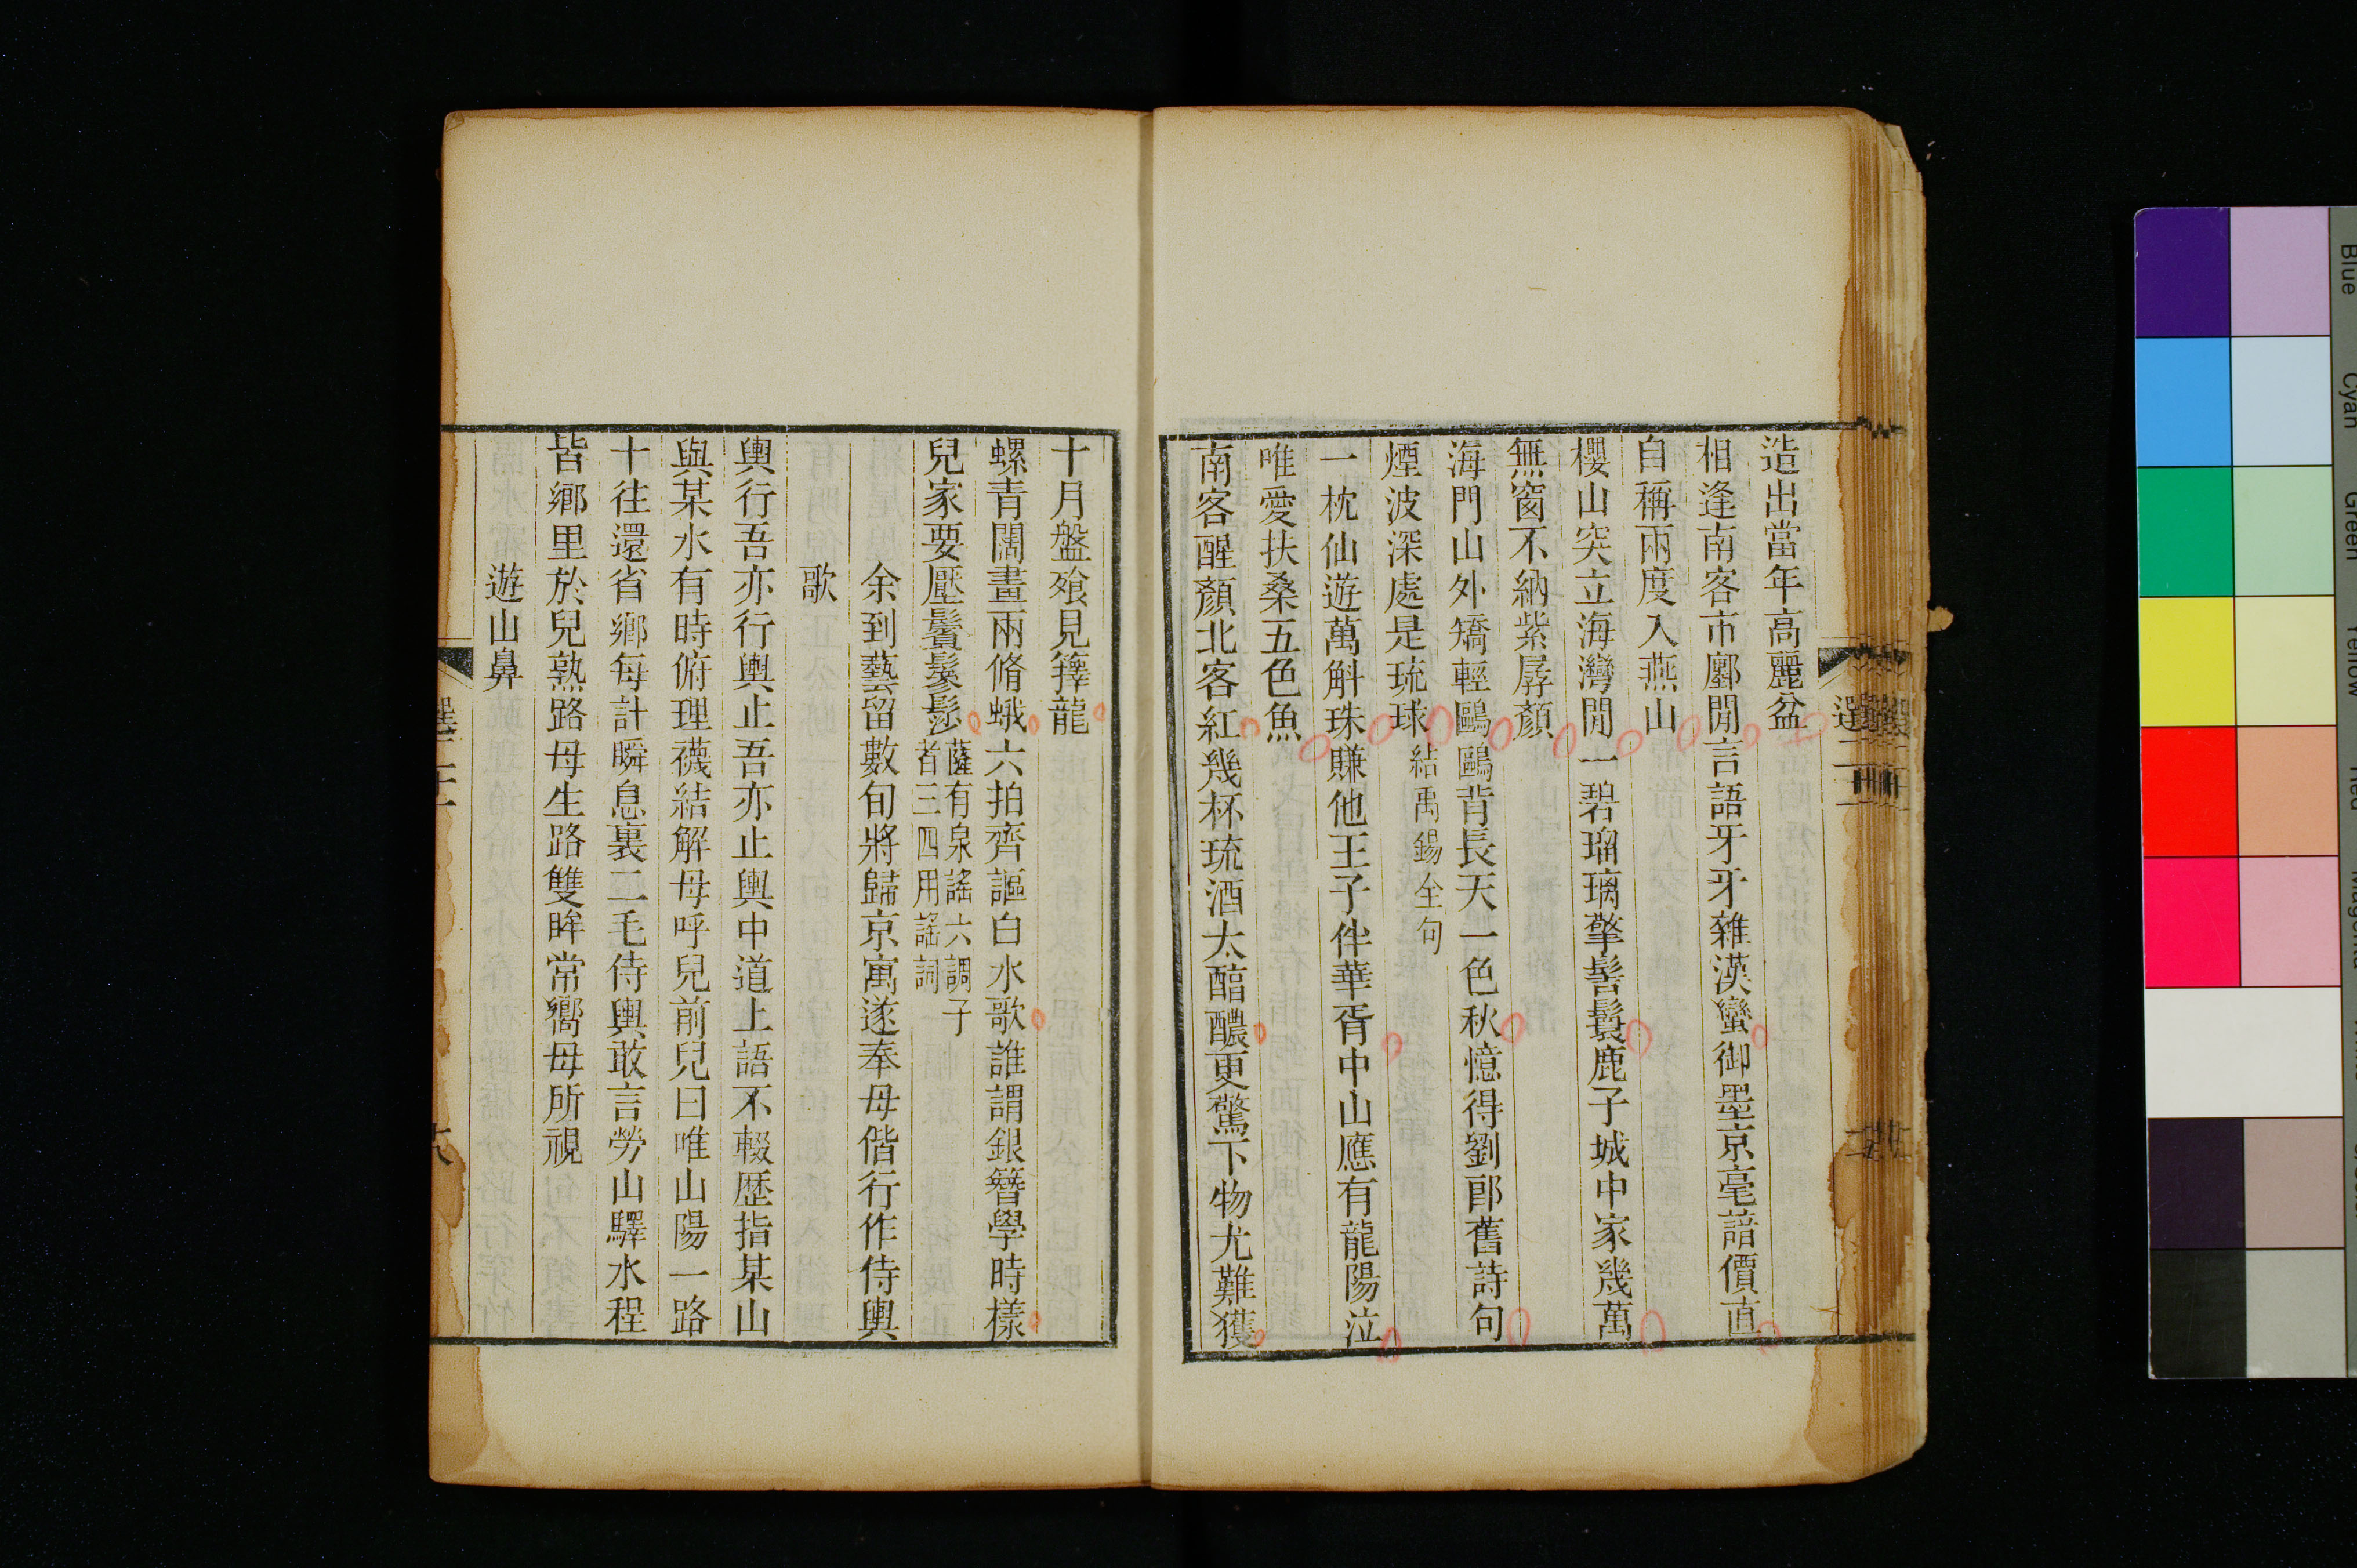 造出當年高麗盆
相逢南客市鄽閒言語牙牙雜漢蠻御墨京毫諳價直
自稱兩度入燕山
櫻山突立海灣閒一碧瑠璃擎髻鬟鹿子城中家幾萬
無窗不納紫孱顏
海門山外矯輕鷗鷗背長天一色秋憶得劉郎舊詩句
煙波深處是琉球結禹錫全句
一枕仙遊萬斛珠賺他王子伴華胥中山應有龍陽泣
唯愛扶桑五色魚
南客醒顏北客紅幾杯琉酒太醕醲更驚下物尤難獲
十月盤飧見籜龍
螺青闊畫兩脩蛾六拍齊謳白水歌誰謂銀簪學時樣
兒家要壓鬢鬖髿薩有泉謠六調子
首三四用謠詞
余到藝留數旬將歸京寓遂奉母偕行作侍輿
歌
輿行吾亦行輿止吾亦止輿中道上語不輟歷指某山
與某水有時俯理襪結解母呼兒前兒曰唯山陽一路
十往還省鄉每計瞬息裏二毛侍輿敢言勞山驛水程
皆鄉里於兒熟路母生路雙眸常嚮母所視
遊山鼻